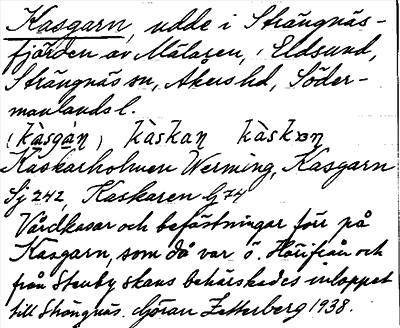 Kasgarn, udde i Strängnäs-
fjärden av Mälaren, i Eldsund,
Strängnäs sn, Åkers hd, Söder-
manlands l.
(kàsgàn) kàskaṇ kàskən
Kaskarholmen Werming, Kasgarn
Sj 242, Kaskaren G 74
Vårdkasar och befästningar förr på
Kasgarn, som då var ö. Härifrån och
från Stenby skans behärskades inloppet
till Strängnäs. Göran Zetterberg 1938.